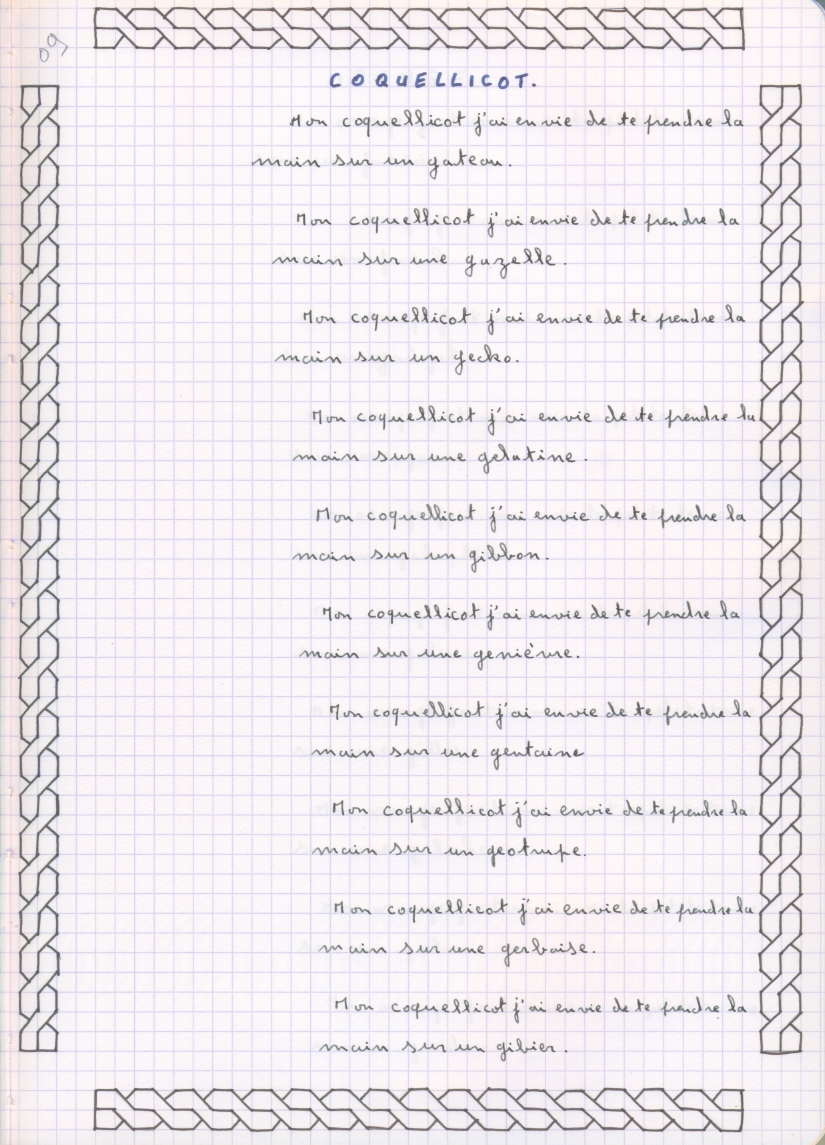 COQUELLICOT.
Mon coquellicot j'ai envie de te prendre la
main sur un gateau.
Mon coquellicot j'ai envie de te prendre la
main sur une gazelle.
Mon coquellicot j'ai envie de te prendre la
main sur un gecko.
Mon coquellicot j'ai envie de te prendre la
main sur une gelatine.
Mon coquellicot j'ai envie de te prendre la
main sur un gibbon.
Mon coquellicot j'ai envie de te prendre la
main sur une genièvre.
Mon coquellicot j'ai envie de te prendre la
main sur une gentaine
Mon coquellicot j'ai envie de te prendre la
main sur un geotrupe.
Mon coquellicot j'ai envie de te prendre la
main sur une gerboise.
Mon coquellicot j'ai envie de te prendre la
main sur un gibier.